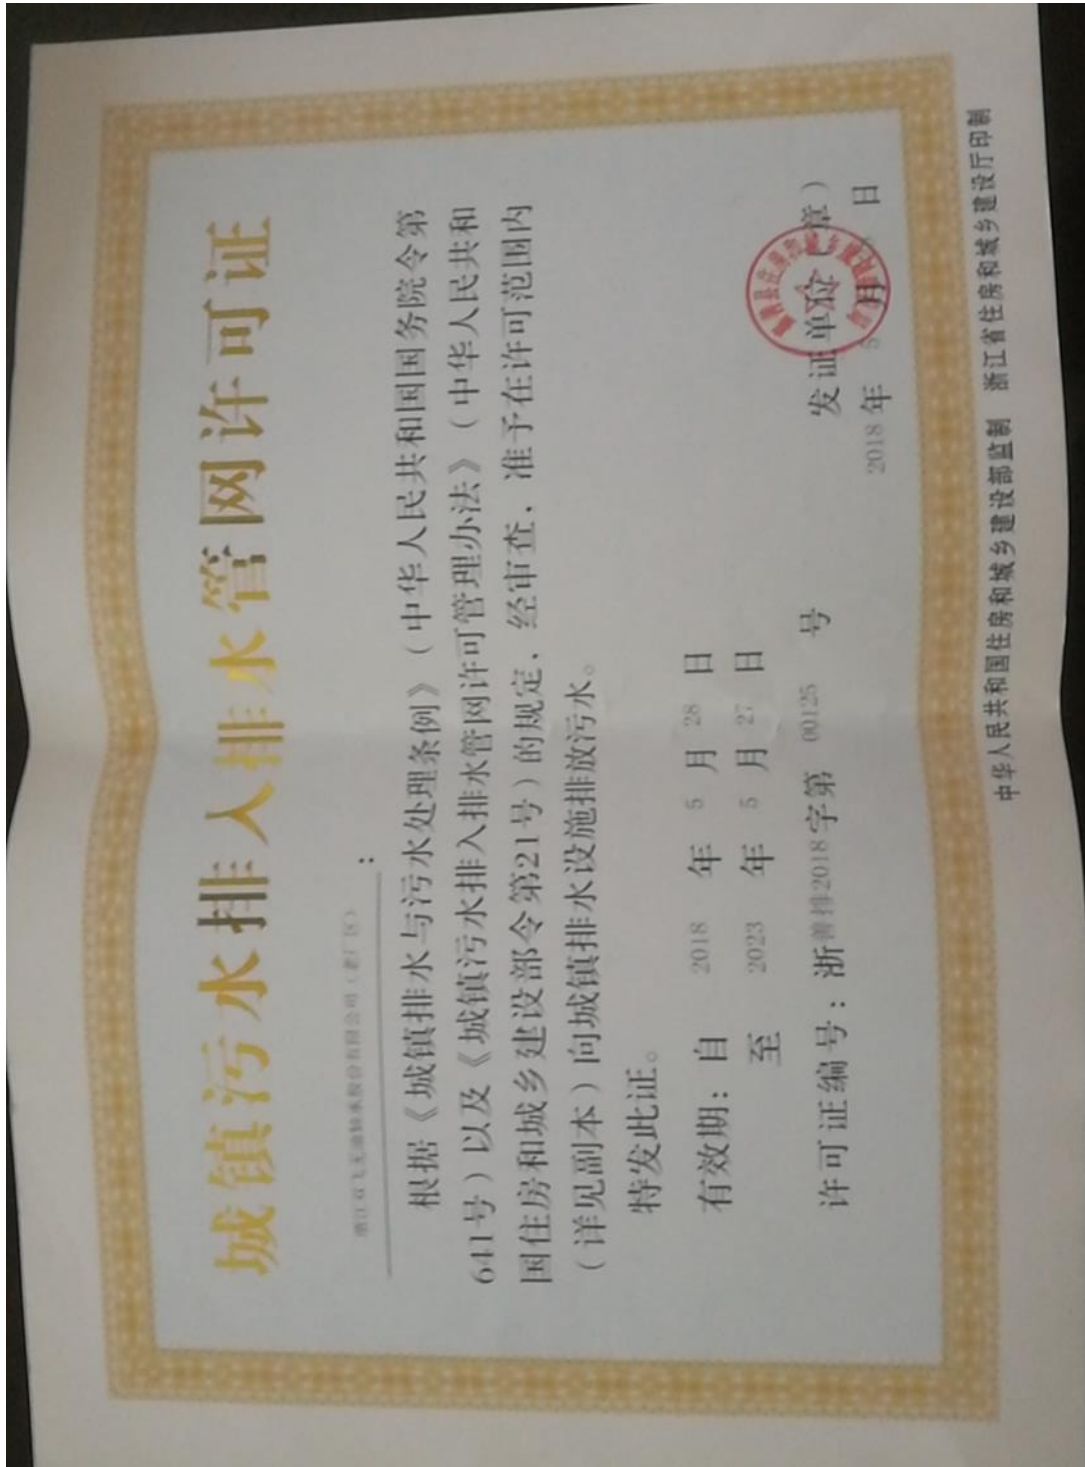 城镇污水排入排水管网许可证
浙江双飞无油轴承股份有限公司（老厂区）：
根据《城镇排水与污水处理条例》（中华人民共和国国务院令第
641号）以及《城镇污水排入排水管网许可管理办法》（中华人民共和
国住房和城乡建设部令第21号）的规定，经审查，准予在许可范围内
（详见副本）向城镇排水设施排放污水。
特发此证。
有效期：自 2018 年 5 月 28 日
至 2023 年 5 月 27 日
许可证编号：浙善排2018字第 00125 号
发证单位（章）
2018 年 5 月 日
中华人民共和国住房和城乡建设部监制 浙江省住房和城乡建设厅印制